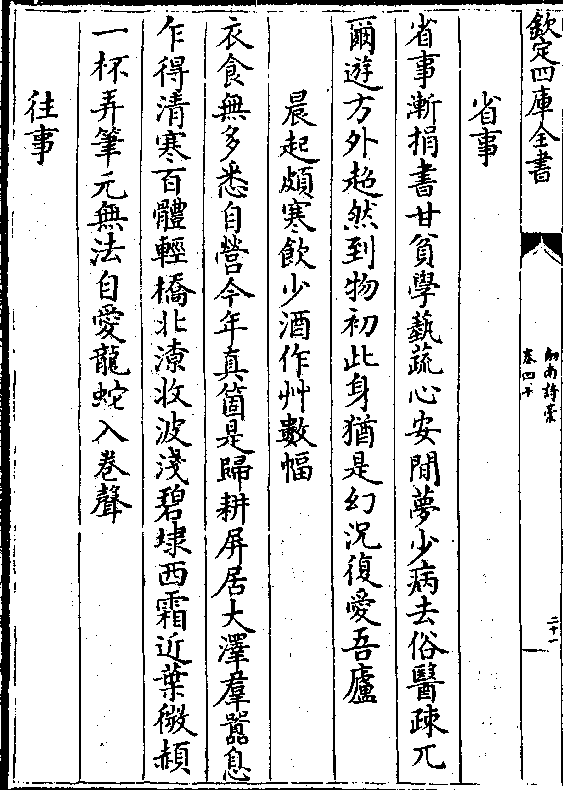 欽定四庫全書
劍南詩稾
卷四十
二十一
省事
省事漸捐書甘貧學蓺蔬心安閒夢少病去俗醫疎兀
爾遊方外超然到物初此身猶是幻況復愛吾廬
晨起頗寒飲少酒作艸數幅
衣食無多悉自營今年真箇是歸耕屏居大澤羣囂息
乍得清寒百體輕橋北潦收波淺碧埭西霜近葉微頳
一杯弄筆元無法自愛龍蛇入卷聲
往事